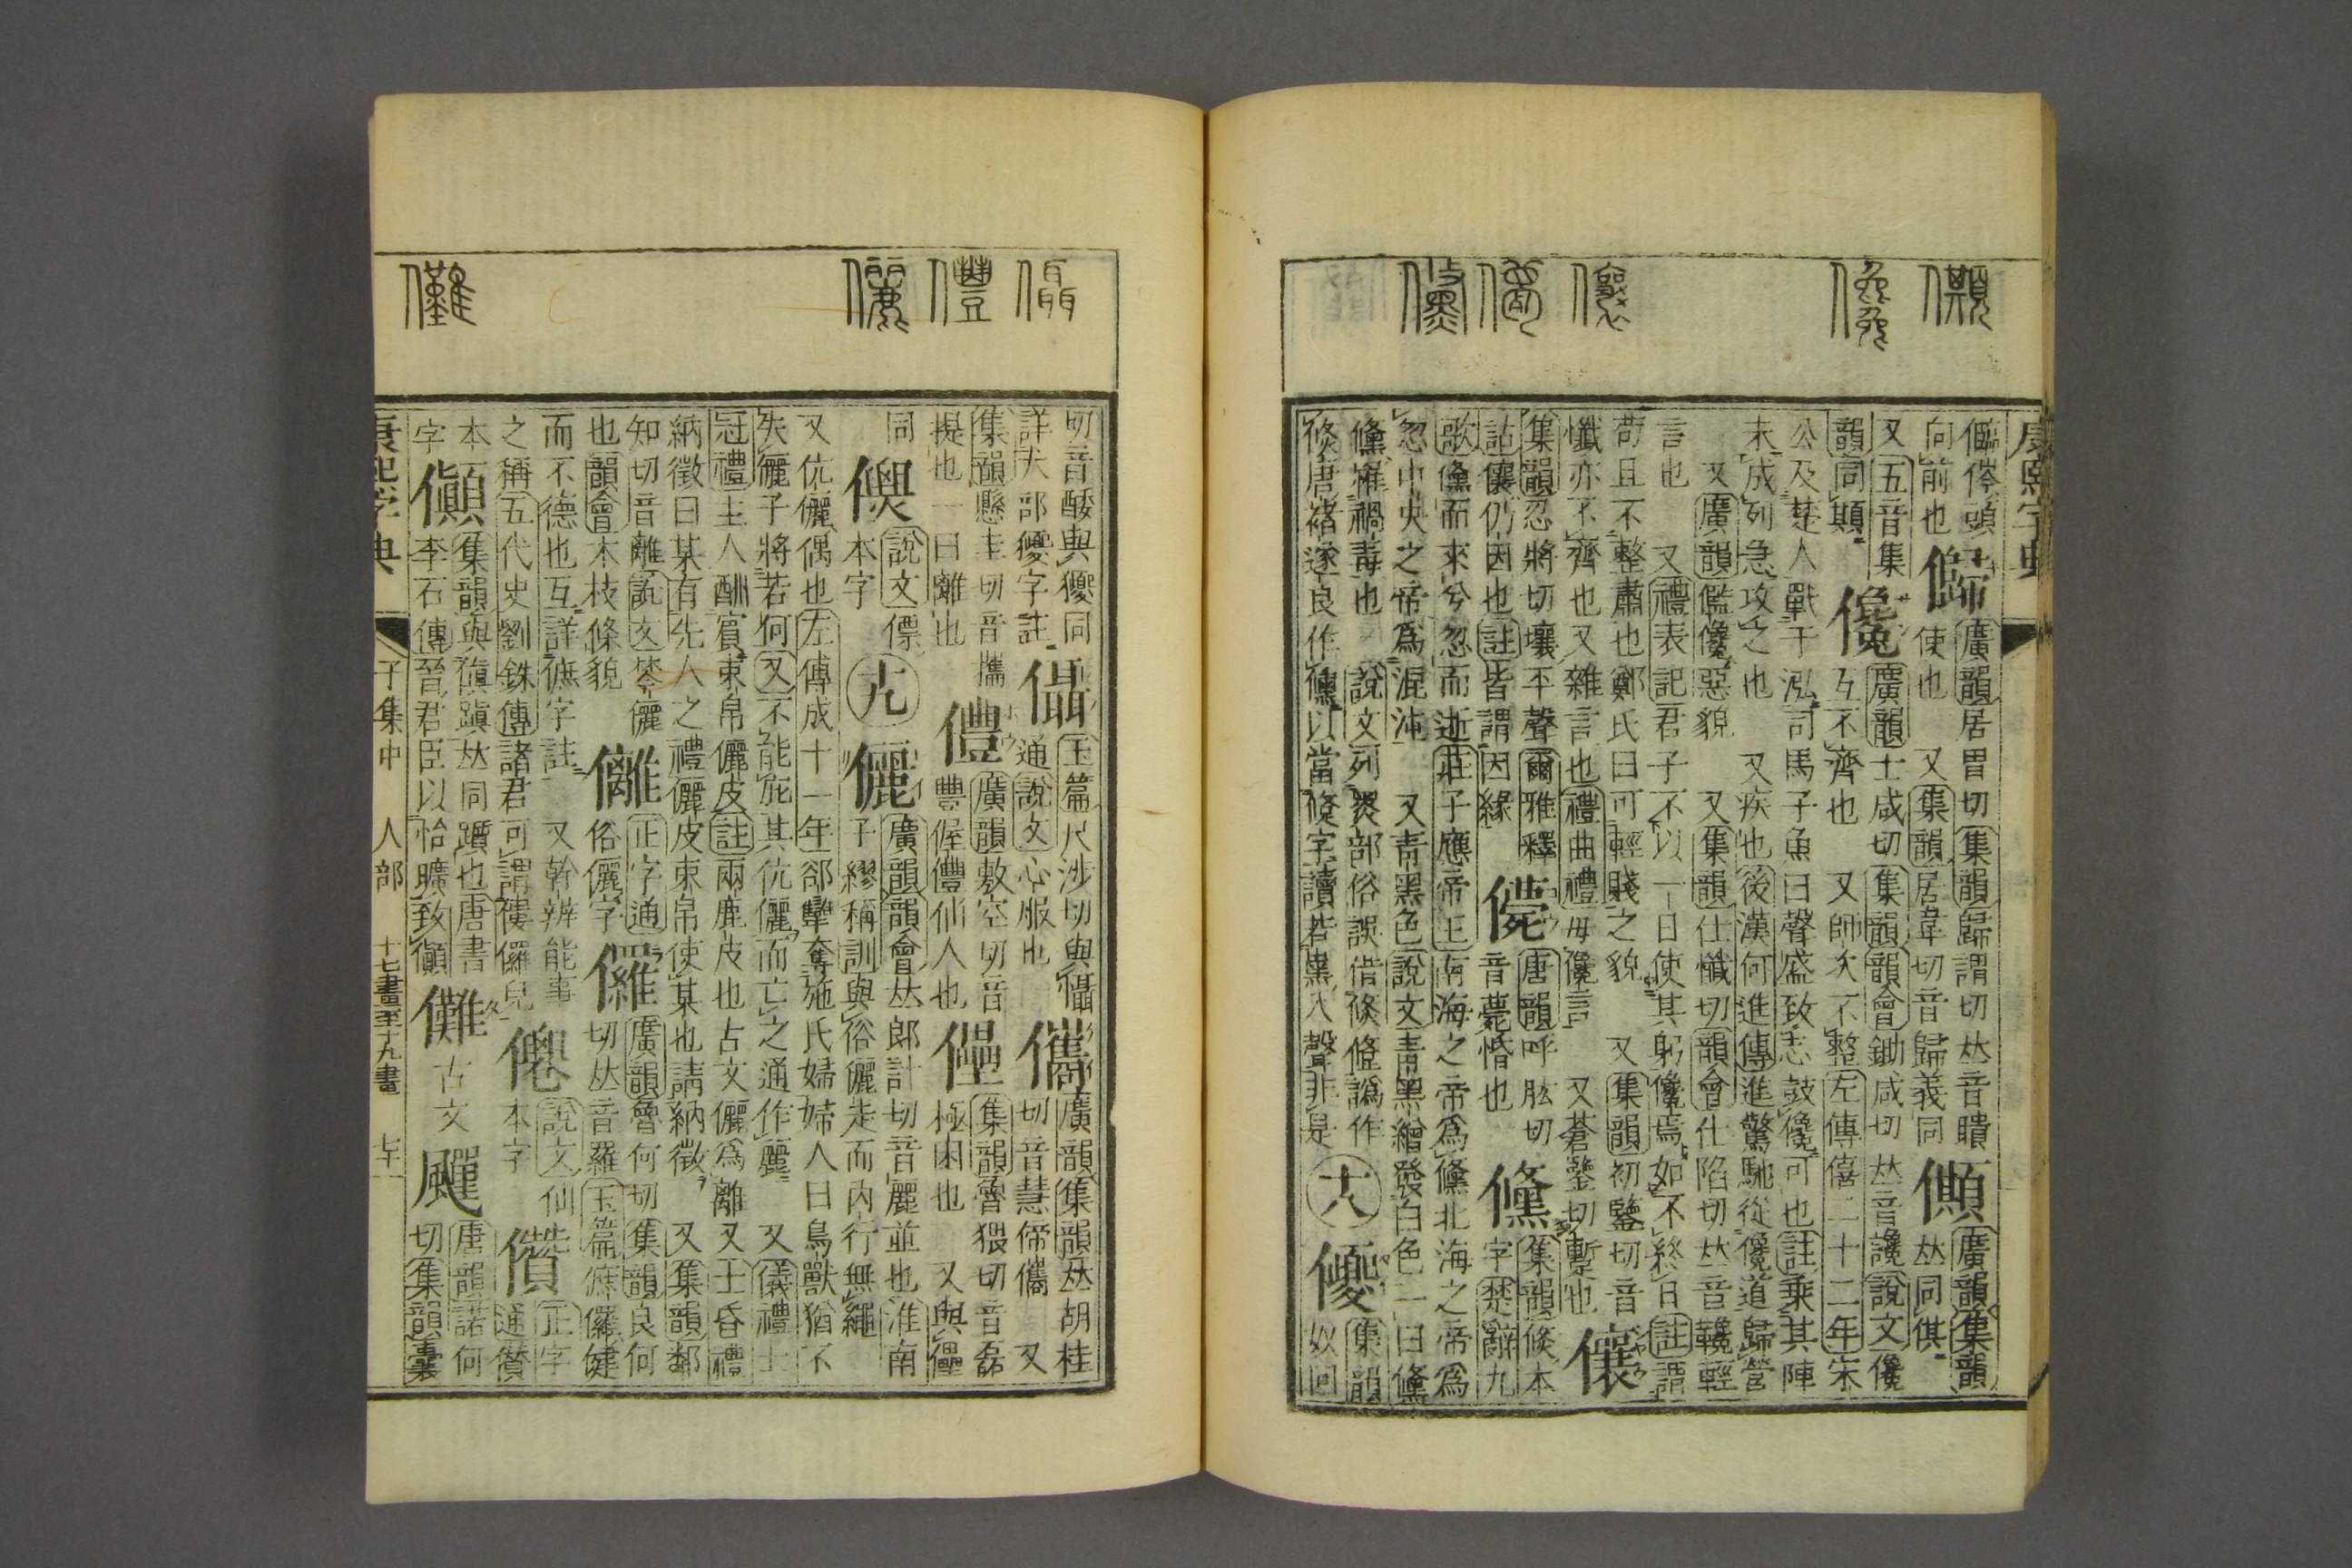 康熙字典
向前也
歸
廣韻居胃切集韻歸謂切𠀤音瞶
使也 又集韻居韋切音歸義同
廣韻集韻
𠀤同僛
又五音集
韻同
儳
廣韻士咸切集韻韻會鋤咸切𠀤音讒說文儳
互不齊也 又師次不整左傳僖二十二年宋
公及楚人戰于泓司馬子魚曰聲盛致志鼓儳可也註乘其陣
未成列急攻之也 又疾也後漢何進傳進驚馳從儳道歸營
又廣韻儖儳惡貌 又集韻仕懺切韻會仕陷切𠀤音鑱輕
言也 又禮表記君子不以一日使其躬儳焉如不終日註謂
苟且不整肅也鄭氏曰可輕賤之貌 又集韻初鑒切音
懺亦不齊也又雜言也禮曲禮毋儳言 又蒼鑒切暫也
儴
集韻忍將切壤平聲爾雅釋
詁儴仍因也註皆謂因緣
儚
唐韻呼肱切
音薨惛也
儵
集韻倐本
字楚辭九
歌儵而來兮忽而逝莊子應帝王南海之帝爲儵北海之帝爲
忽中央之帝爲混沌 又靑黑色說文靑黑繒發白色一曰儵
儵㷟禍毒也 說文列炎部俗誤借倐譌作
倐唐褚遂良作儵以當倐字讀若黑入聲非是
十八
集韻
奴囘
切音醙與獿同
詳犬部獿字註
㒤
玉篇尺涉切與懾
通說文心服也
儶
廣韻集韻𠀤胡桂
切音慧偙儶 又
集韻懸圭切音攜
提也一曰離也
㒥
廣韻敷空切音
豐偓㒥仙人也
集韻魯猥切音磊
極困也 又與儡
同
說文僄
本字
十九
儷
廣韻韻會𠀤郎計切音麗並也淮南
子繆稱訓與俗儷走而內行無繩
又伉儷偶也左傳成十一年郤犫奪施氏婦婦人曰鳥獸猶不
失儷子將若何又不能庇其伉儷而亡之通作麗 又儀禮士
冠禮主人酬賓束帛儷皮註兩鹿皮也古文儷爲離 又士昏禮
納徵曰某有先人之禮儷皮束帛使某也請納徵 又集韻鄰
知切音離說文棽儷
也韻會木枝條貌
㒧
正字通
俗儷字
儸
廣韻魯何切集韻良何
切𠀤音羅玉篇㒇儸健
而不德也互詳㒇字註 又幹辨能事
之稱五代史劉銖傳諸君可謂僂儸兒
說文仙
本字
儹
正字
通儹
本
字
儧
集韻與傎蹎𠀤同躓也唐書
李石傳晉君臣以怡曠致傎
儺
古文
唐韻諾何
切集韻囊
康熙字典 子集中 人部 十七畫至十九畫 七十一